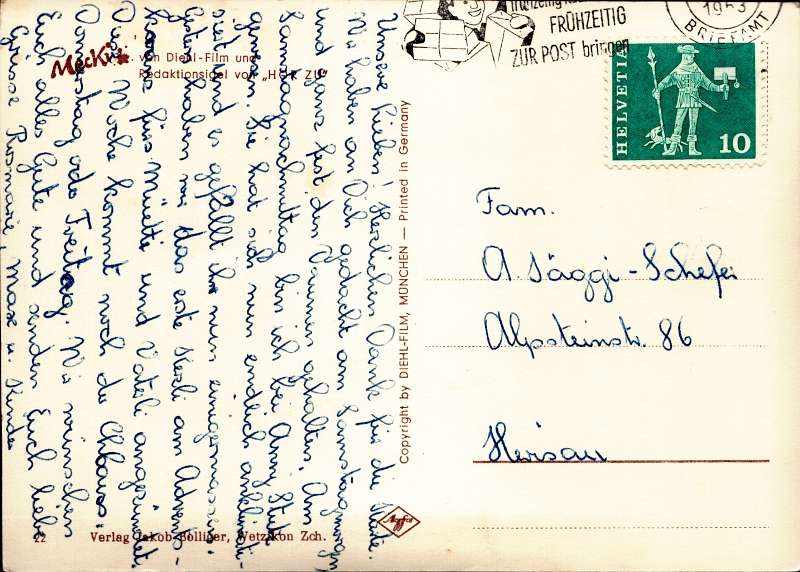 Unsere Lieben! Herzlichen Dank für die Karte.
Wir haben an Dich gedacht am Samstagmorgen
und ganz fest den Daumen gehalten. Am
Samstagnachmittag bin ich bei Anny Stutz
gewesen. Sie hat sich nun endlich anklimati-
siert und es gefällt ihr nun einigermassen.
Gestern haben wir das erste Kerzli am Advents-
kranz fürs Müetti und Vateli angezündet.
Diese Woche kommt noch der Chlaus
Donnerstag oder Freitag. Wir wünschen
Euch alles Gute und senden Euch liebe
Grüsse Rosmarie, Max u. Kinder
Mecki
von Diehl-Film und
Redaktionsigel von „HÖR ZU“
22
Verlag Jakob Bolliger, Wetzikon Zch.
Copyright by DIEHL-FILM, MÜNCHEN — Printed in Germany
Agfa
FRÜHZEITIG
ZUR POST bringen
BRIEFAMT
HELVETIA
10
Fam.
A. Säggi-Schefer
Alpsteinstr. 86
Herisau